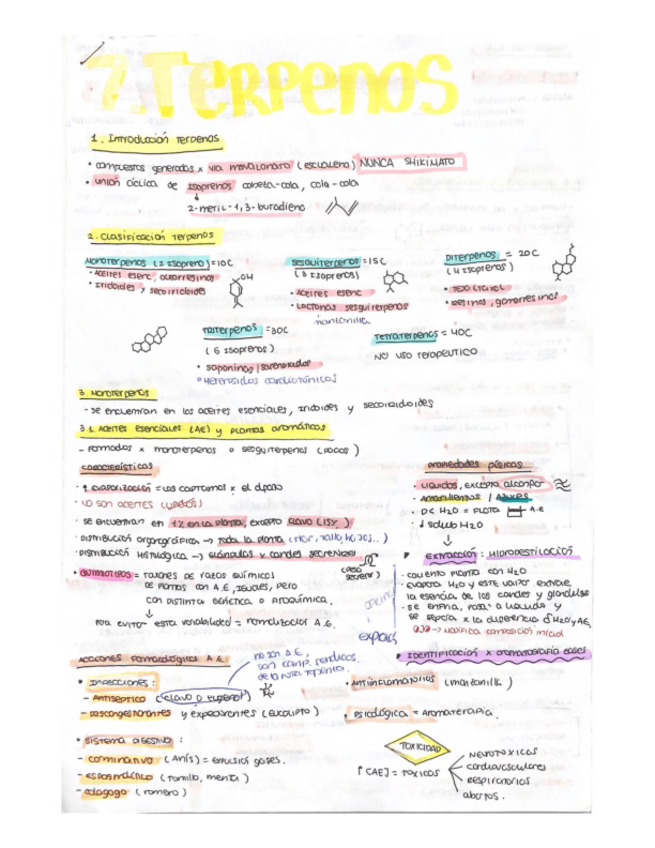 7. TERPENOS
1. Introducción terpenos
• compuestos generados x via mevalonato (escualeno) NUNCA SHIKIMATO
• unión cíclica de isoprenos cabeza-cola, cola-cola
2-metil-1,3-butadieno
2. Clasificación terpenos
Monoterpenos (2 isopreno) = 10C
• Aceites esenc, oleorresinas
• Iridoides y secoiridoides
OH
Sesquiterpenos = 15C
(3 Isoprenos)
• Aceites esenc
• Lactonas sesquiterpenos
manzanilla
Diterpenos = 20C
(4 Isoprenos)
• Resinas, gomorresinas
Triterpenos = 30C
(6 Isoprenos)
• saponinas
° Heterosidos cardiotónicos
Tetraterpenos = 40C
NO USO TERAPEUTICO
3. Monoterpenos
- se encuentran en los aceites esenciales, iridoides y secoiridoides
3.1 Aceites esenciales (AE) y plantas aromáticas
- Formados x monoterpenos o sesquiterpenos (pocos)
Características
• ↑ evaporización = las captamos x el olfato
• NO SON ACEITES (lípidos)
• se encuentran en 1% en la planta, excepto clavo (15%)
• Distribución organográfica → toda la planta (flor, tallo, hojas...)
• Distribución Histológica → glándulas y canales secretores
(pelo secretor)
• Quimiotipos = razones de razas químicas
de plantas con A.E, iguales, pero
con distinta genética o
↓
Para evitar esta variabilidad = normalización A.E.
Propiedades físicas
• Líquidos, excepto alcanfor
• Amarillentos / Azules
• D< H2O = flota A.E
• ↓ solub H2O
↓
Extracción: Hidrodestilación
• caliento planta con H2O
• evapora H2O y este vapor extrae,
la esencia de los canales y glandulas
• se enfria, pasa a liquido y
se separa x la diferencia δ H2O y AE,
→ modifica composición inicial
Identificación x cromatografía gases
Acciones farmacológicas A.E
no son A.E,
son comp. fenólicos
• Infecciones:
- Antiseptico (clavo o eugenol)
- Descongestionantes y expectorantes (eucalipto)
• Sistema digestivo:
- carminativo (Anís) = expulsió gases.
- espasmolítico (tomillo, menta)
- colagogo (romero)
• Antiinflamatorios (manzanilla)
• Psicológica = Aromaterapia.
TOXICIDAD
↑ [AE] = TOXICOS
Neurotoxicos
cardiovasculares
respiratorios
abortos.